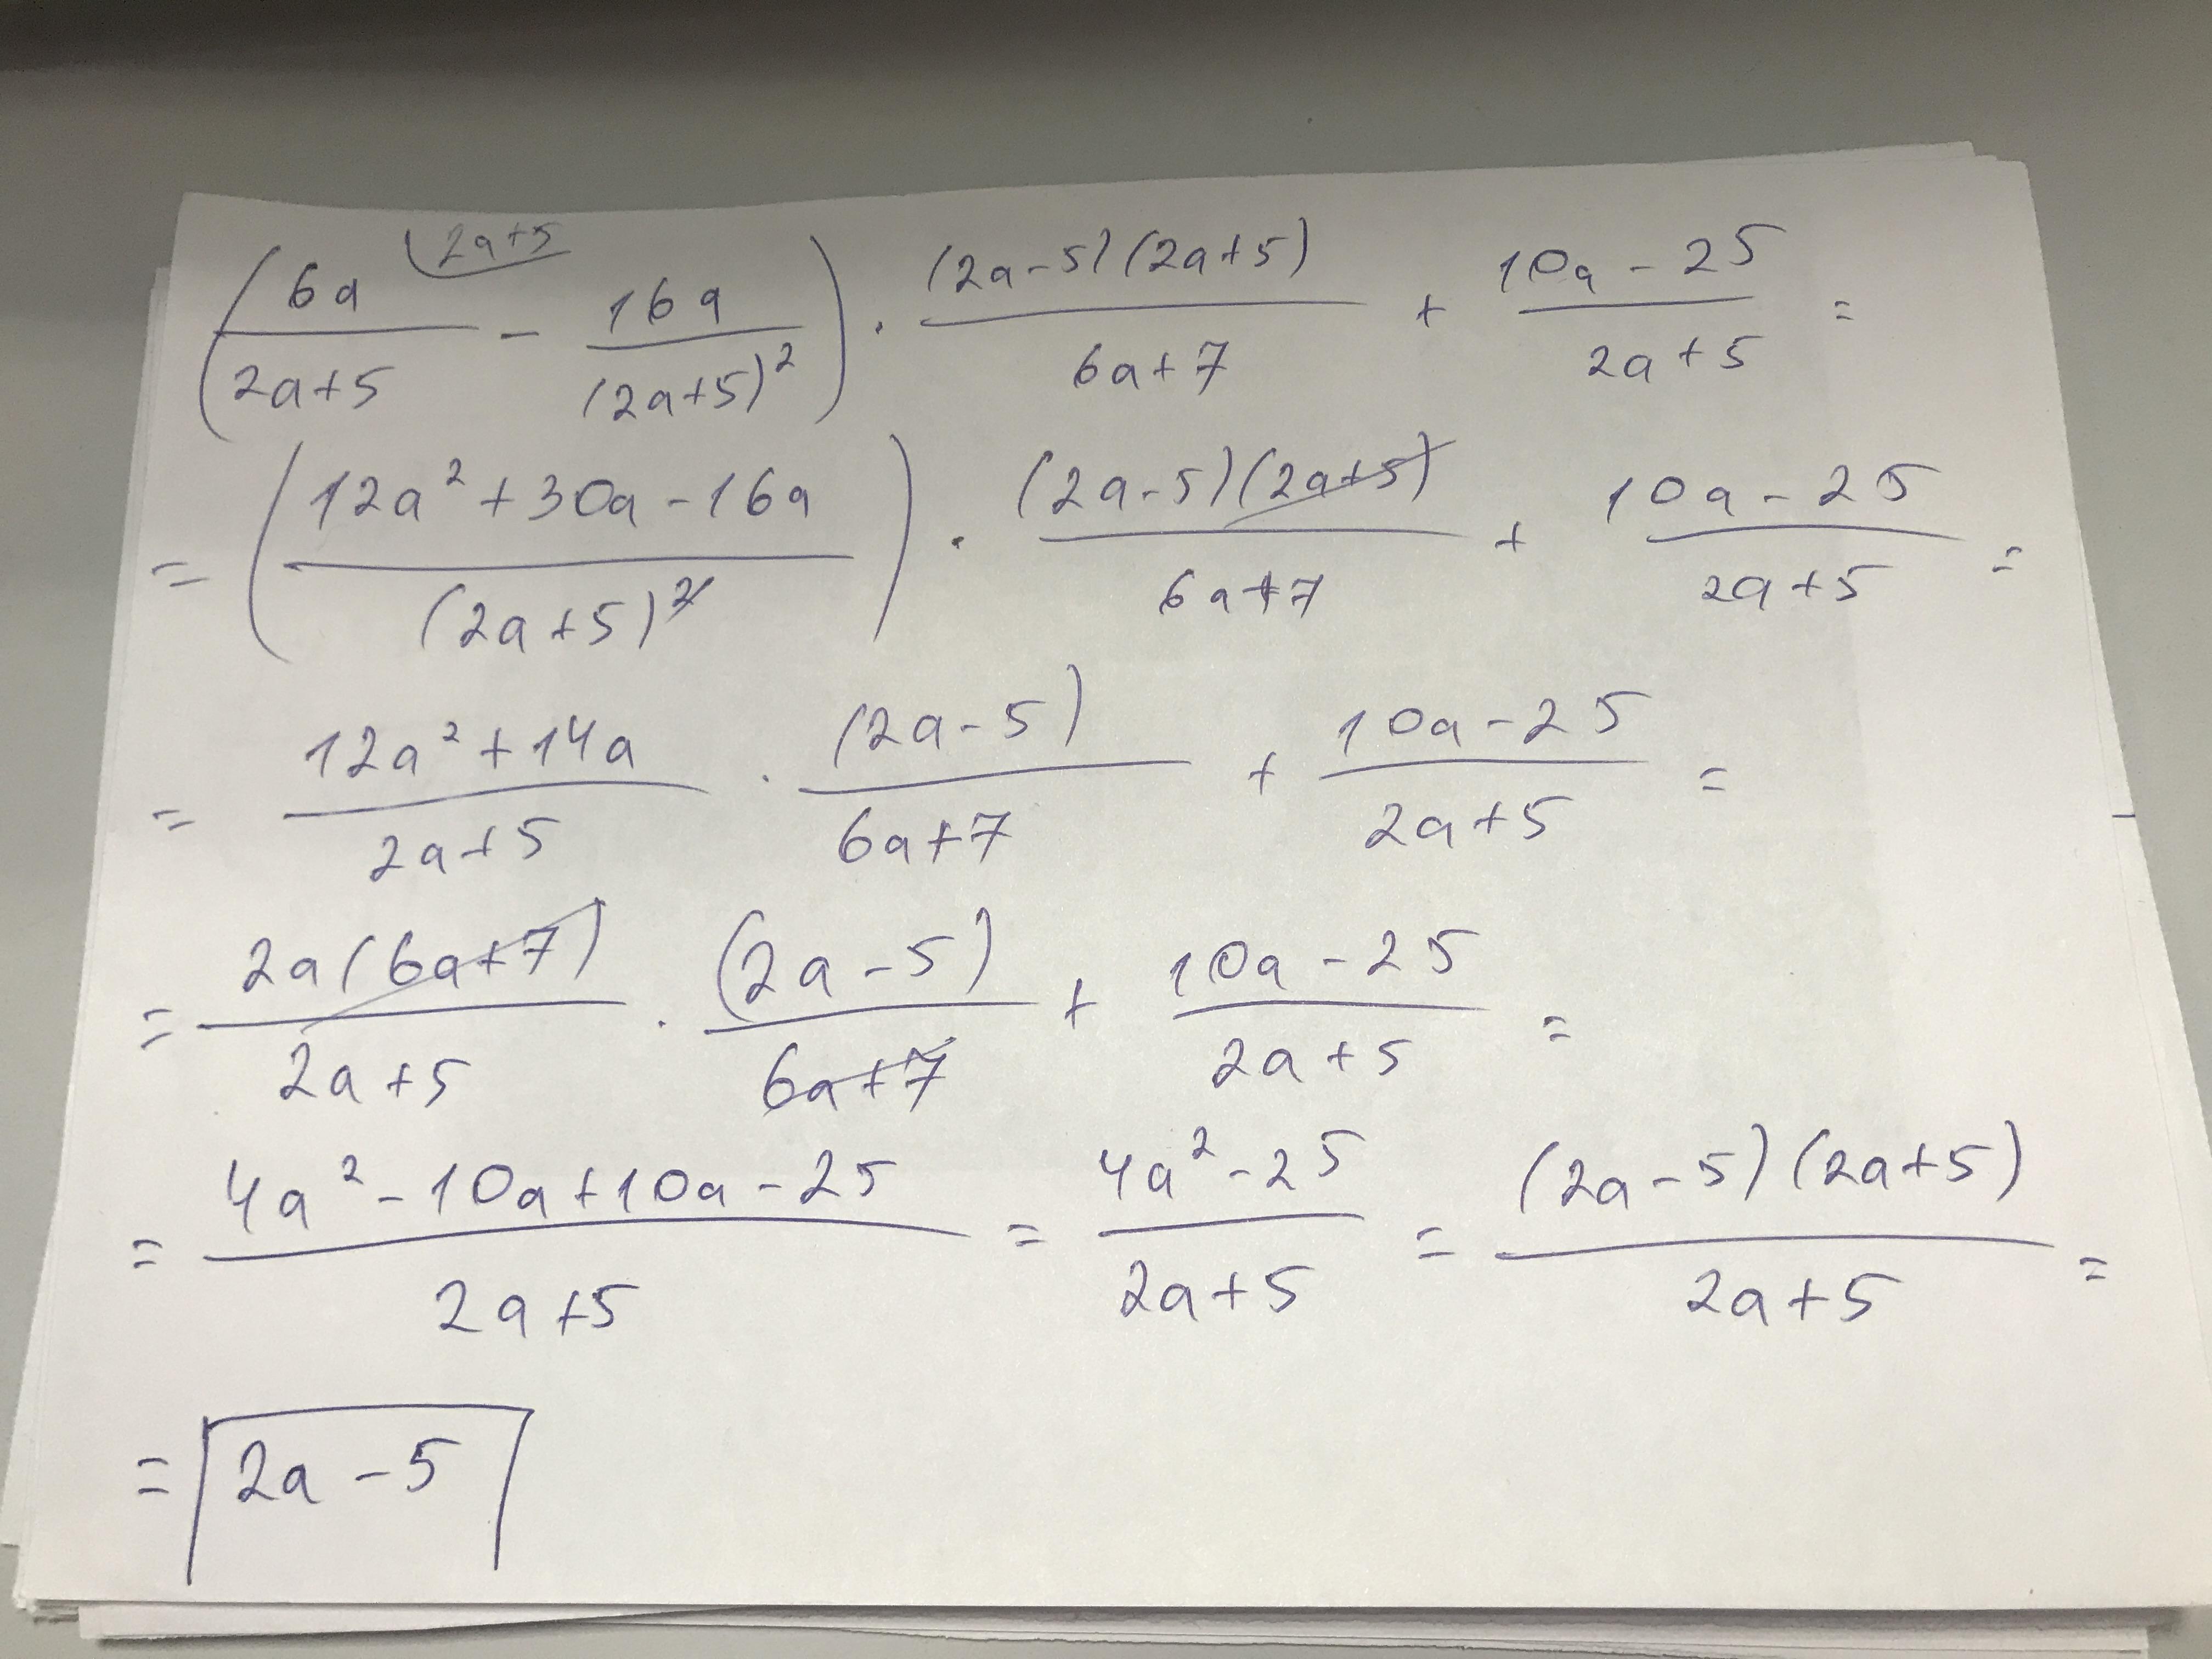 (6a/(2a+5) ⁽2a+5 - 16a/(2a+5)²) · (2a-5)(2a+5)/(6a+7) + (10a-25)/(2a+5) =
= ((12a²+30a-16a)/(2a+5)²) · (2a-5)(2a+5)/(6a+7) + (10a-25)/(2a+5) =
= (12a²+14a)/(2a+5) · (2a-5)/(6a+7) + (10a-25)/(2a+5) =
= 2a(6a+7)/(2a+5) · (2a-5)/(6a+7) + (10a-25)/(2a+5) =
= (4a²-10a+10a-25)/(2a+5) = (4a²-25)/(2a+5) = (2a-5)(2a+5)/(2a+5) =
= 2a-5